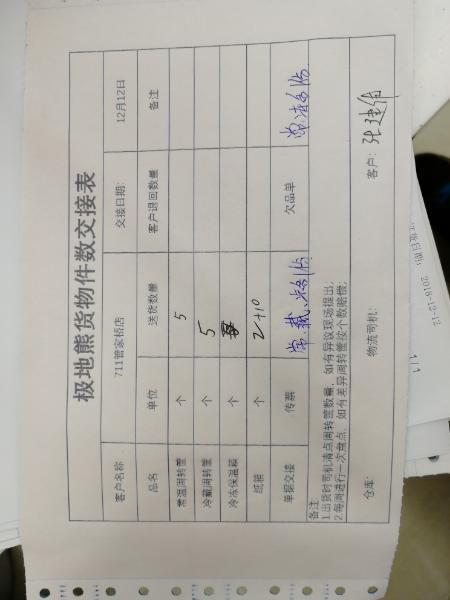 极地熊货物件数交接表
客户名称 711管家桥店 交接日期: 12月12日
品名 单位 送货数量 客户退回数量 备注
常温周转筐 个 5
冷藏周转筐 个 5
冷冻保温箱 个
纸箱 个
单据交接 传票 欠品单
备注:
1.出货时司机清点周转筐数量,如有异议现场提出;
2.每周进行一次盘点,如有差异周转筐按个数赔偿;
仓库: 物流司机: 客户:
2018-12-12
1/1